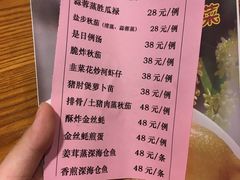 蒜蓉蒸胜瓜禄 28元/例
盐步秋茄（清蒸、蒜蓉蒸） 28元/例
是日例汤 38元/例
脆炸秋茄 38元/例
韭菜花炒河虾仔 38元/例
猪肘煲萝卜苗 38元/例
排骨/土猪肉蒸秋茄 48元/例
酥炸金丝蚝 48元/例
金丝蚝煎蛋 48元/例
姜茸蒸深海仓鱼 48元/条
香煎深海仓鱼 48元/条
菜